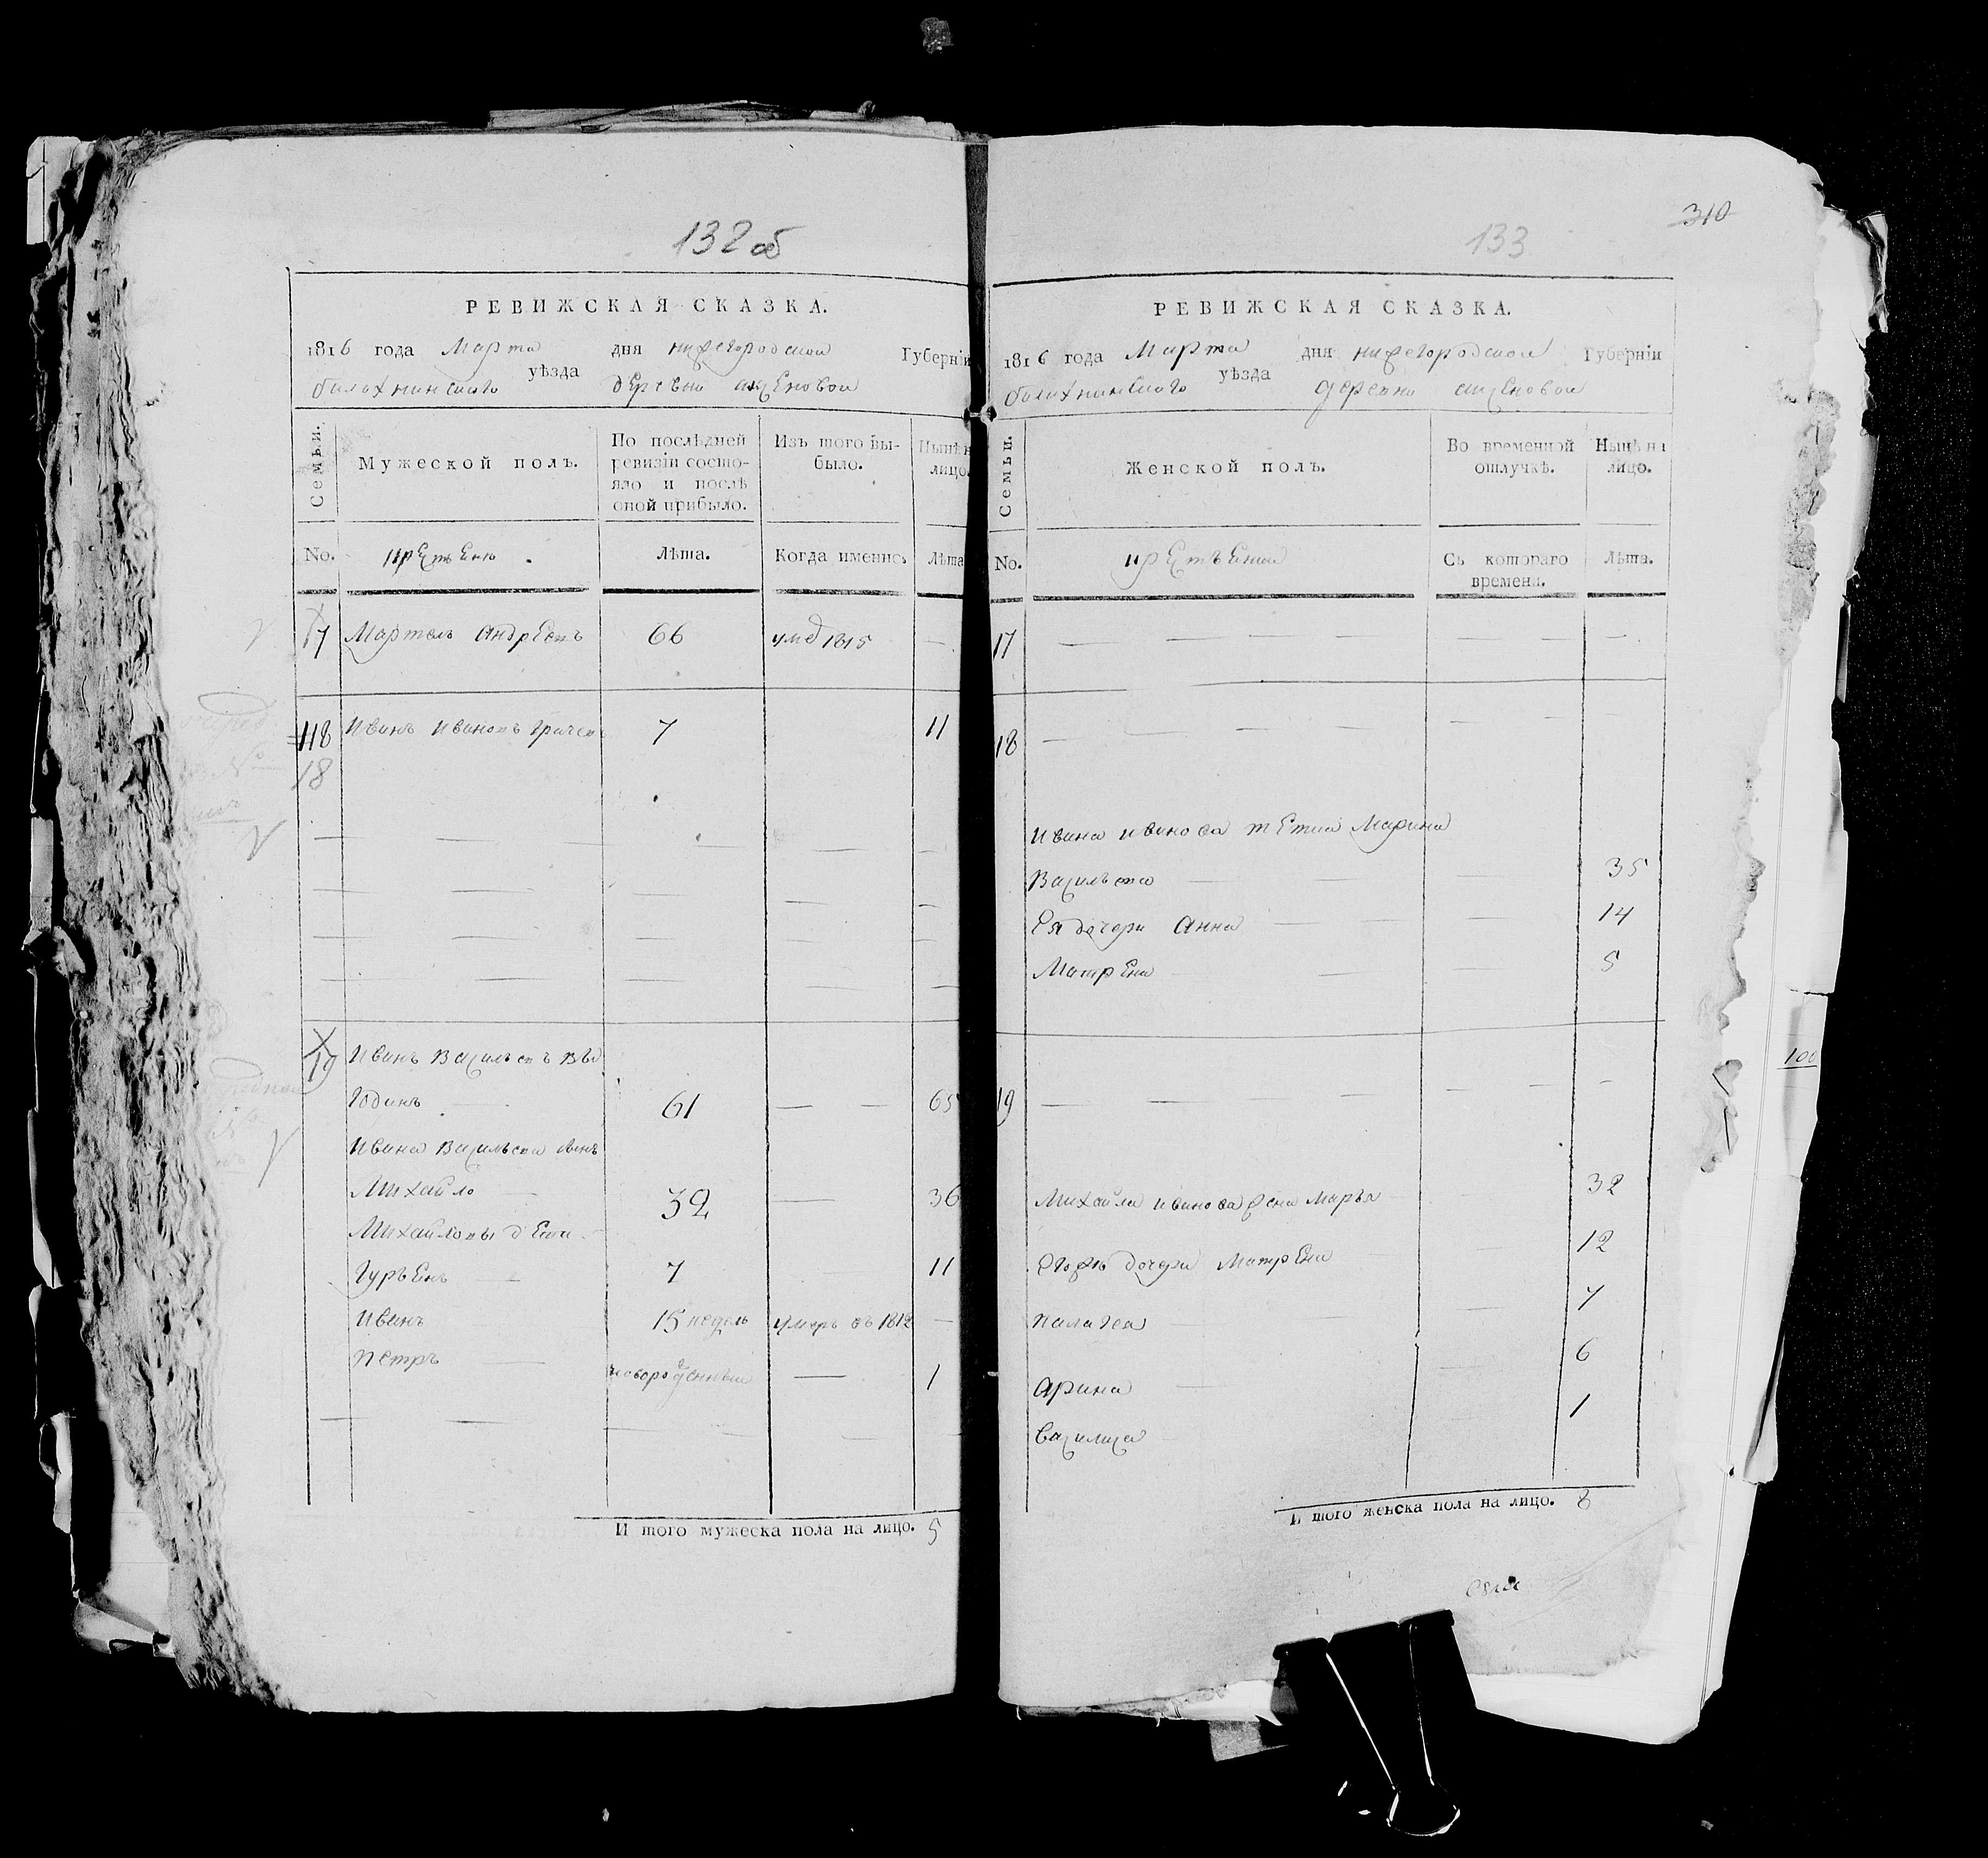 132 об
РЕВИЖСКАЯ СКАЗКА.
1816 года Марта дня нижегородской Губерніи
балахнинского уѣзда деревни
Семьи.
Мужеской полъ.
По послѣдней ревизіи состояло и послѣ оной прибыло.
Изъ того выбыло.
Нынѣ н лицо.
No.
Лѣта.
Когда именно
Лѣта
17 Мартел Андреевъ 66 умд 1815 —
118 Иванъ Ивановъ Грачев 7 11
18
19 Иванъ Васильевъ
Годинъ 61 — — 65
Ивана Васильева сынъ
Михайло 32 — 36
Михайловы дети
Гурьенъ 7 11
Иванъ 15 недель умеръ въ 1812 —
Петръ новорожденный — 1
И того мужеска пола на лицо. 5
310
133
РЕВИЖСКАЯ СКАЗКА.
1816 года Марта дня нижегородской Губерніи
балахнинского уѣзда деревни
Семьи.
Женской полъ.
Во временной отлучкѣ.
Нынѣ на лицо.
No.
Съ котораго времени.
Лѣта.
17 — — — — — — —
18 — — — — — — —
Ивана Иванова тетка Марина
Васильева 35
Ея дочери Анна 14
Матрена 5
19 — — — — — — —
Михайла Иванова жена Марья 32
Егожъ дочери Матрена 12
Палагея 7
Арина 6
Василиса 1
И того женска пола на лицо. 8
100